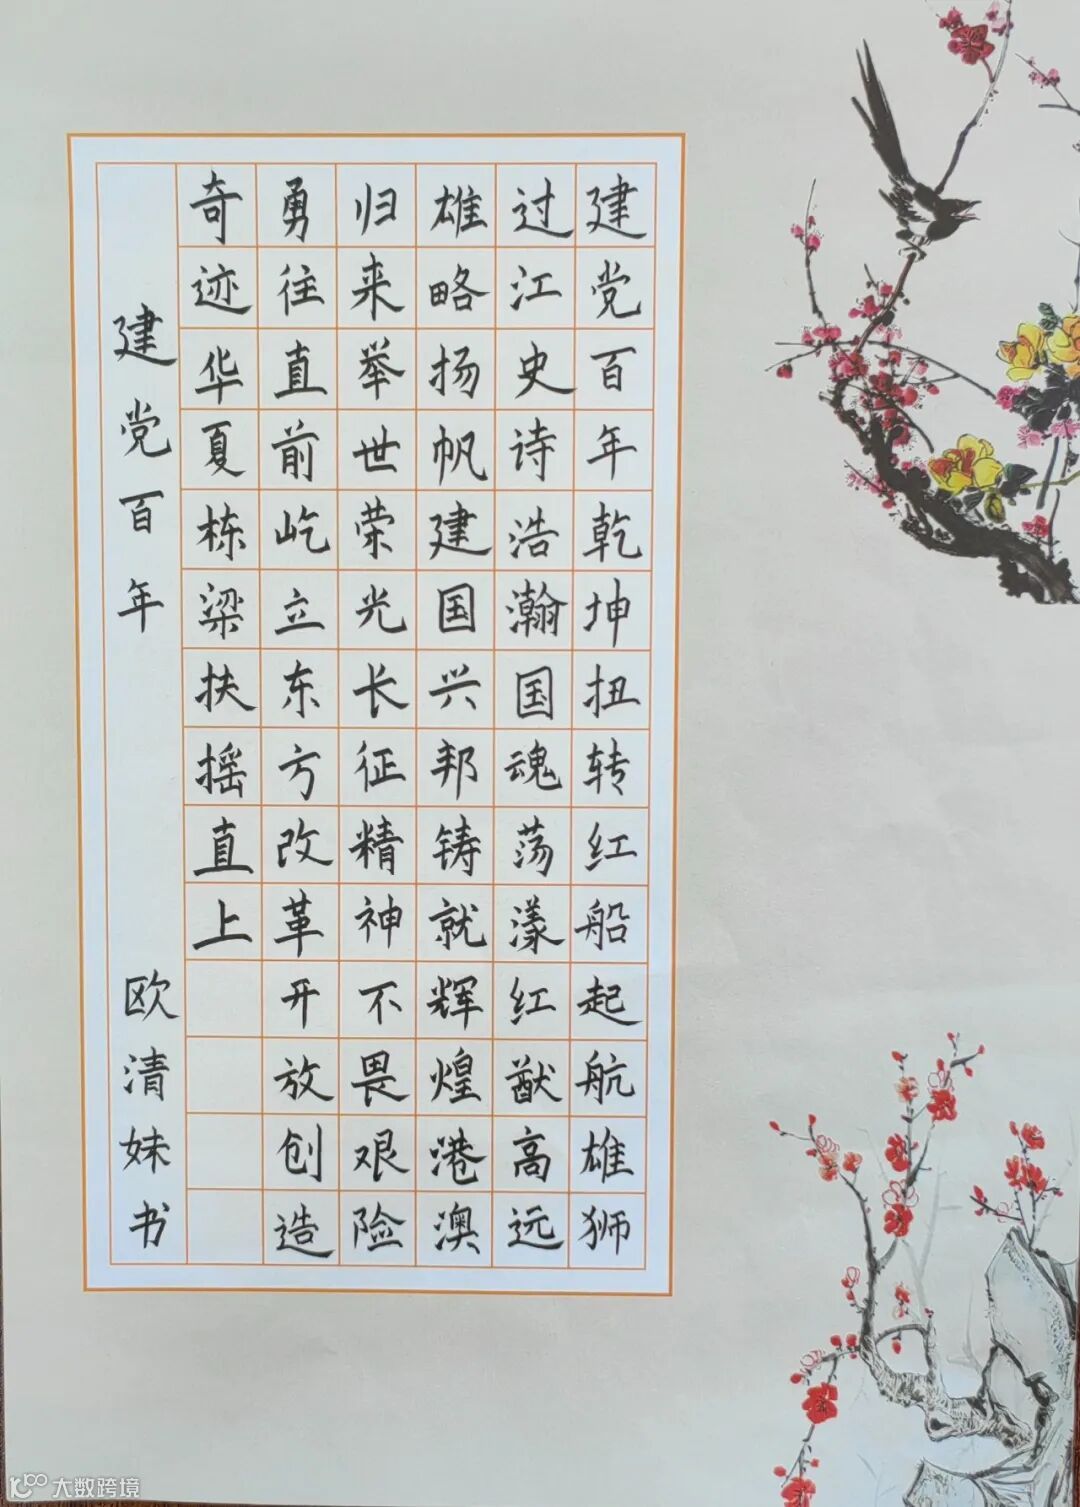 建党百年乾坤扭转红船起航雄狮
过江史诗浩瀚国魂荡漾红猷高远
雄略扬帆建国兴邦铸就辉煌港澳
归来举世荣光长征精神不畏艰险
勇往直前屹立东方改革开放创造
奇迹华夏栋梁扶摇直上
建党百年 欧清妹书
大数跨境